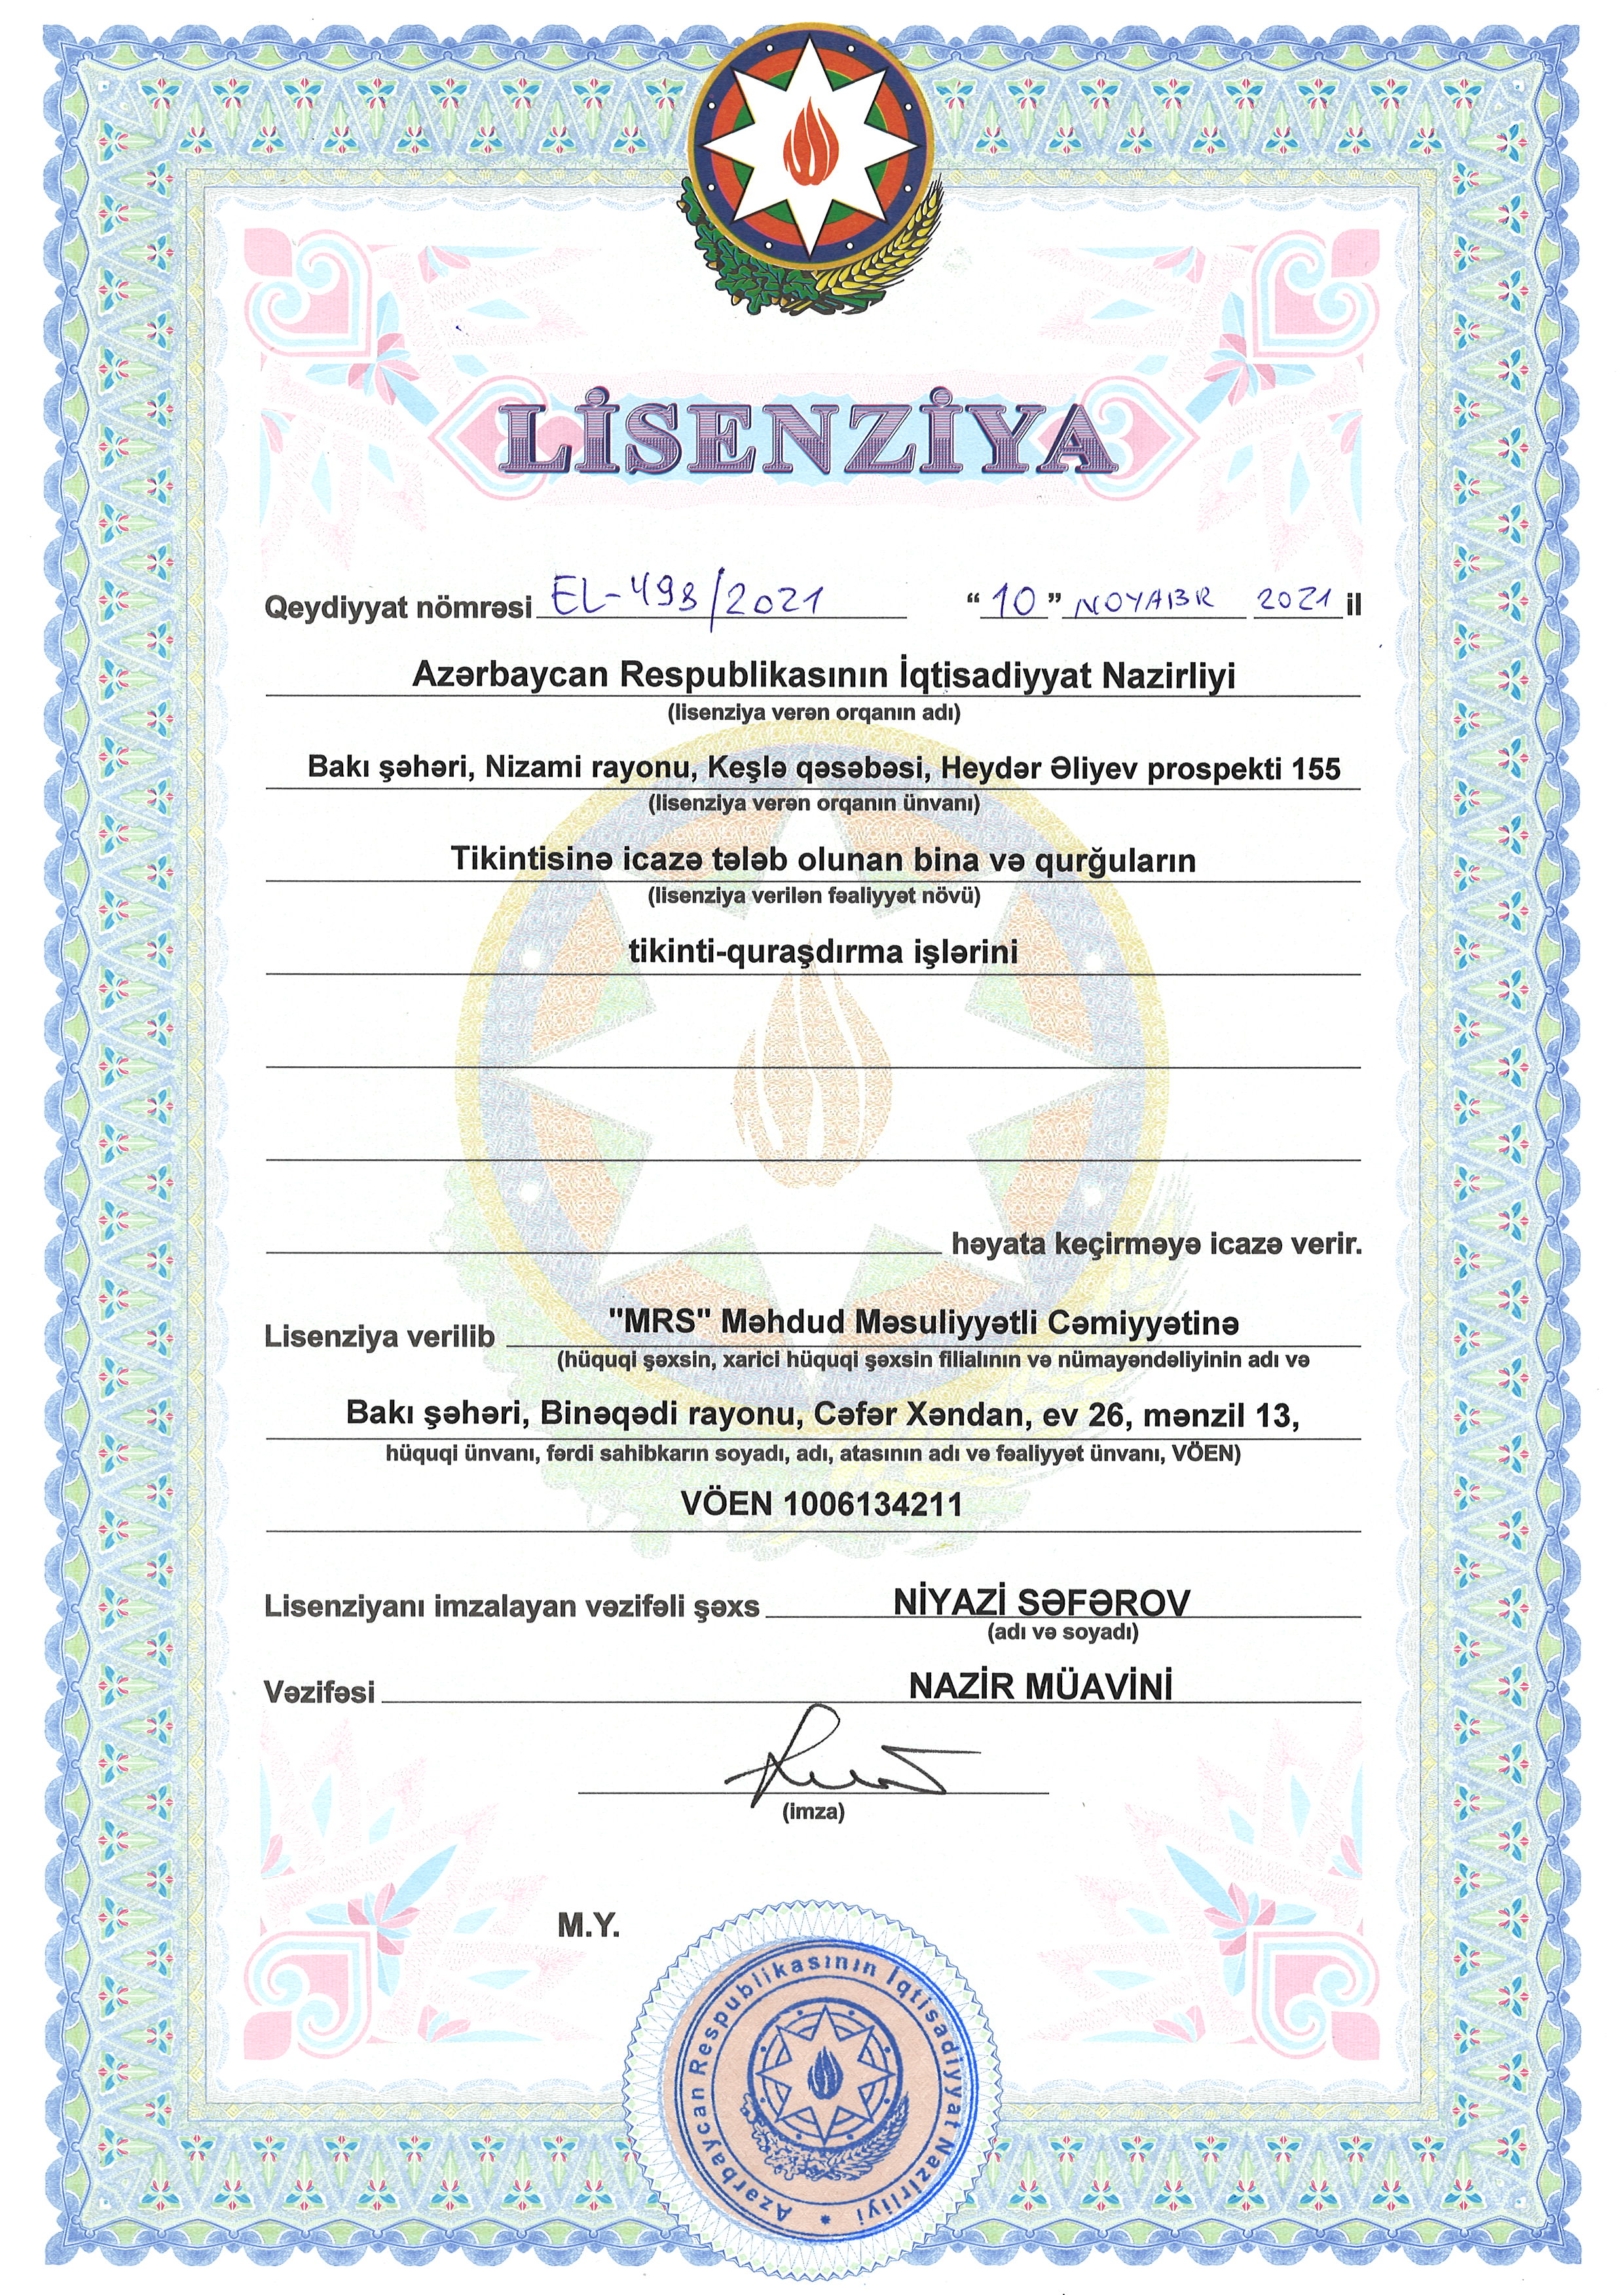 LİSENZİYA
Qeydiyyat nömrəsi EL-498/2021 “10” NOYABR 2021 il
Azərbaycan Respublikasının İqtisadiyyat Nazirliyi
(lisenziya verən orqanın adı)
Bakı şəhəri, Nizami rayonu, Keşlə qəsəbəsi, Heydər Əliyev prospekti 155
(lisenziya verən orqanın ünvanı)
Tikintisinə icazə tələb olunan bina və qurğuların
(lisenziya verilən fəaliyyət növü)
tikinti-quraşdırma işlərini
həyata keçirməyə icazə verir.
Lisenziya verilib "MRS" Məhdud Məsuliyyətli Cəmiyyətinə
(hüquqi şəxsin, xarici hüquqi şəxsin filialının və nümayəndəliyinin adı və
Bakı şəhəri, Binəqədi rayonu, Cəfər Xəndan, ev 26, mənzil 13,
hüquqi ünvanı, fərdi sahibkarın soyadı, adı, atasının adı və fəaliyyət ünvanı, VÖEN)
VÖEN 1006134211
Lisenziyanı imzalayan vəzifəli şəxs NİYAZİ SƏFƏROV
(adı və soyadı)
Vəzifəsi NAZİR MÜAVİNİ
(imza)
M.Y.
Azərbaycan Respublikasının İqtisadiyyat Nazirliyi *